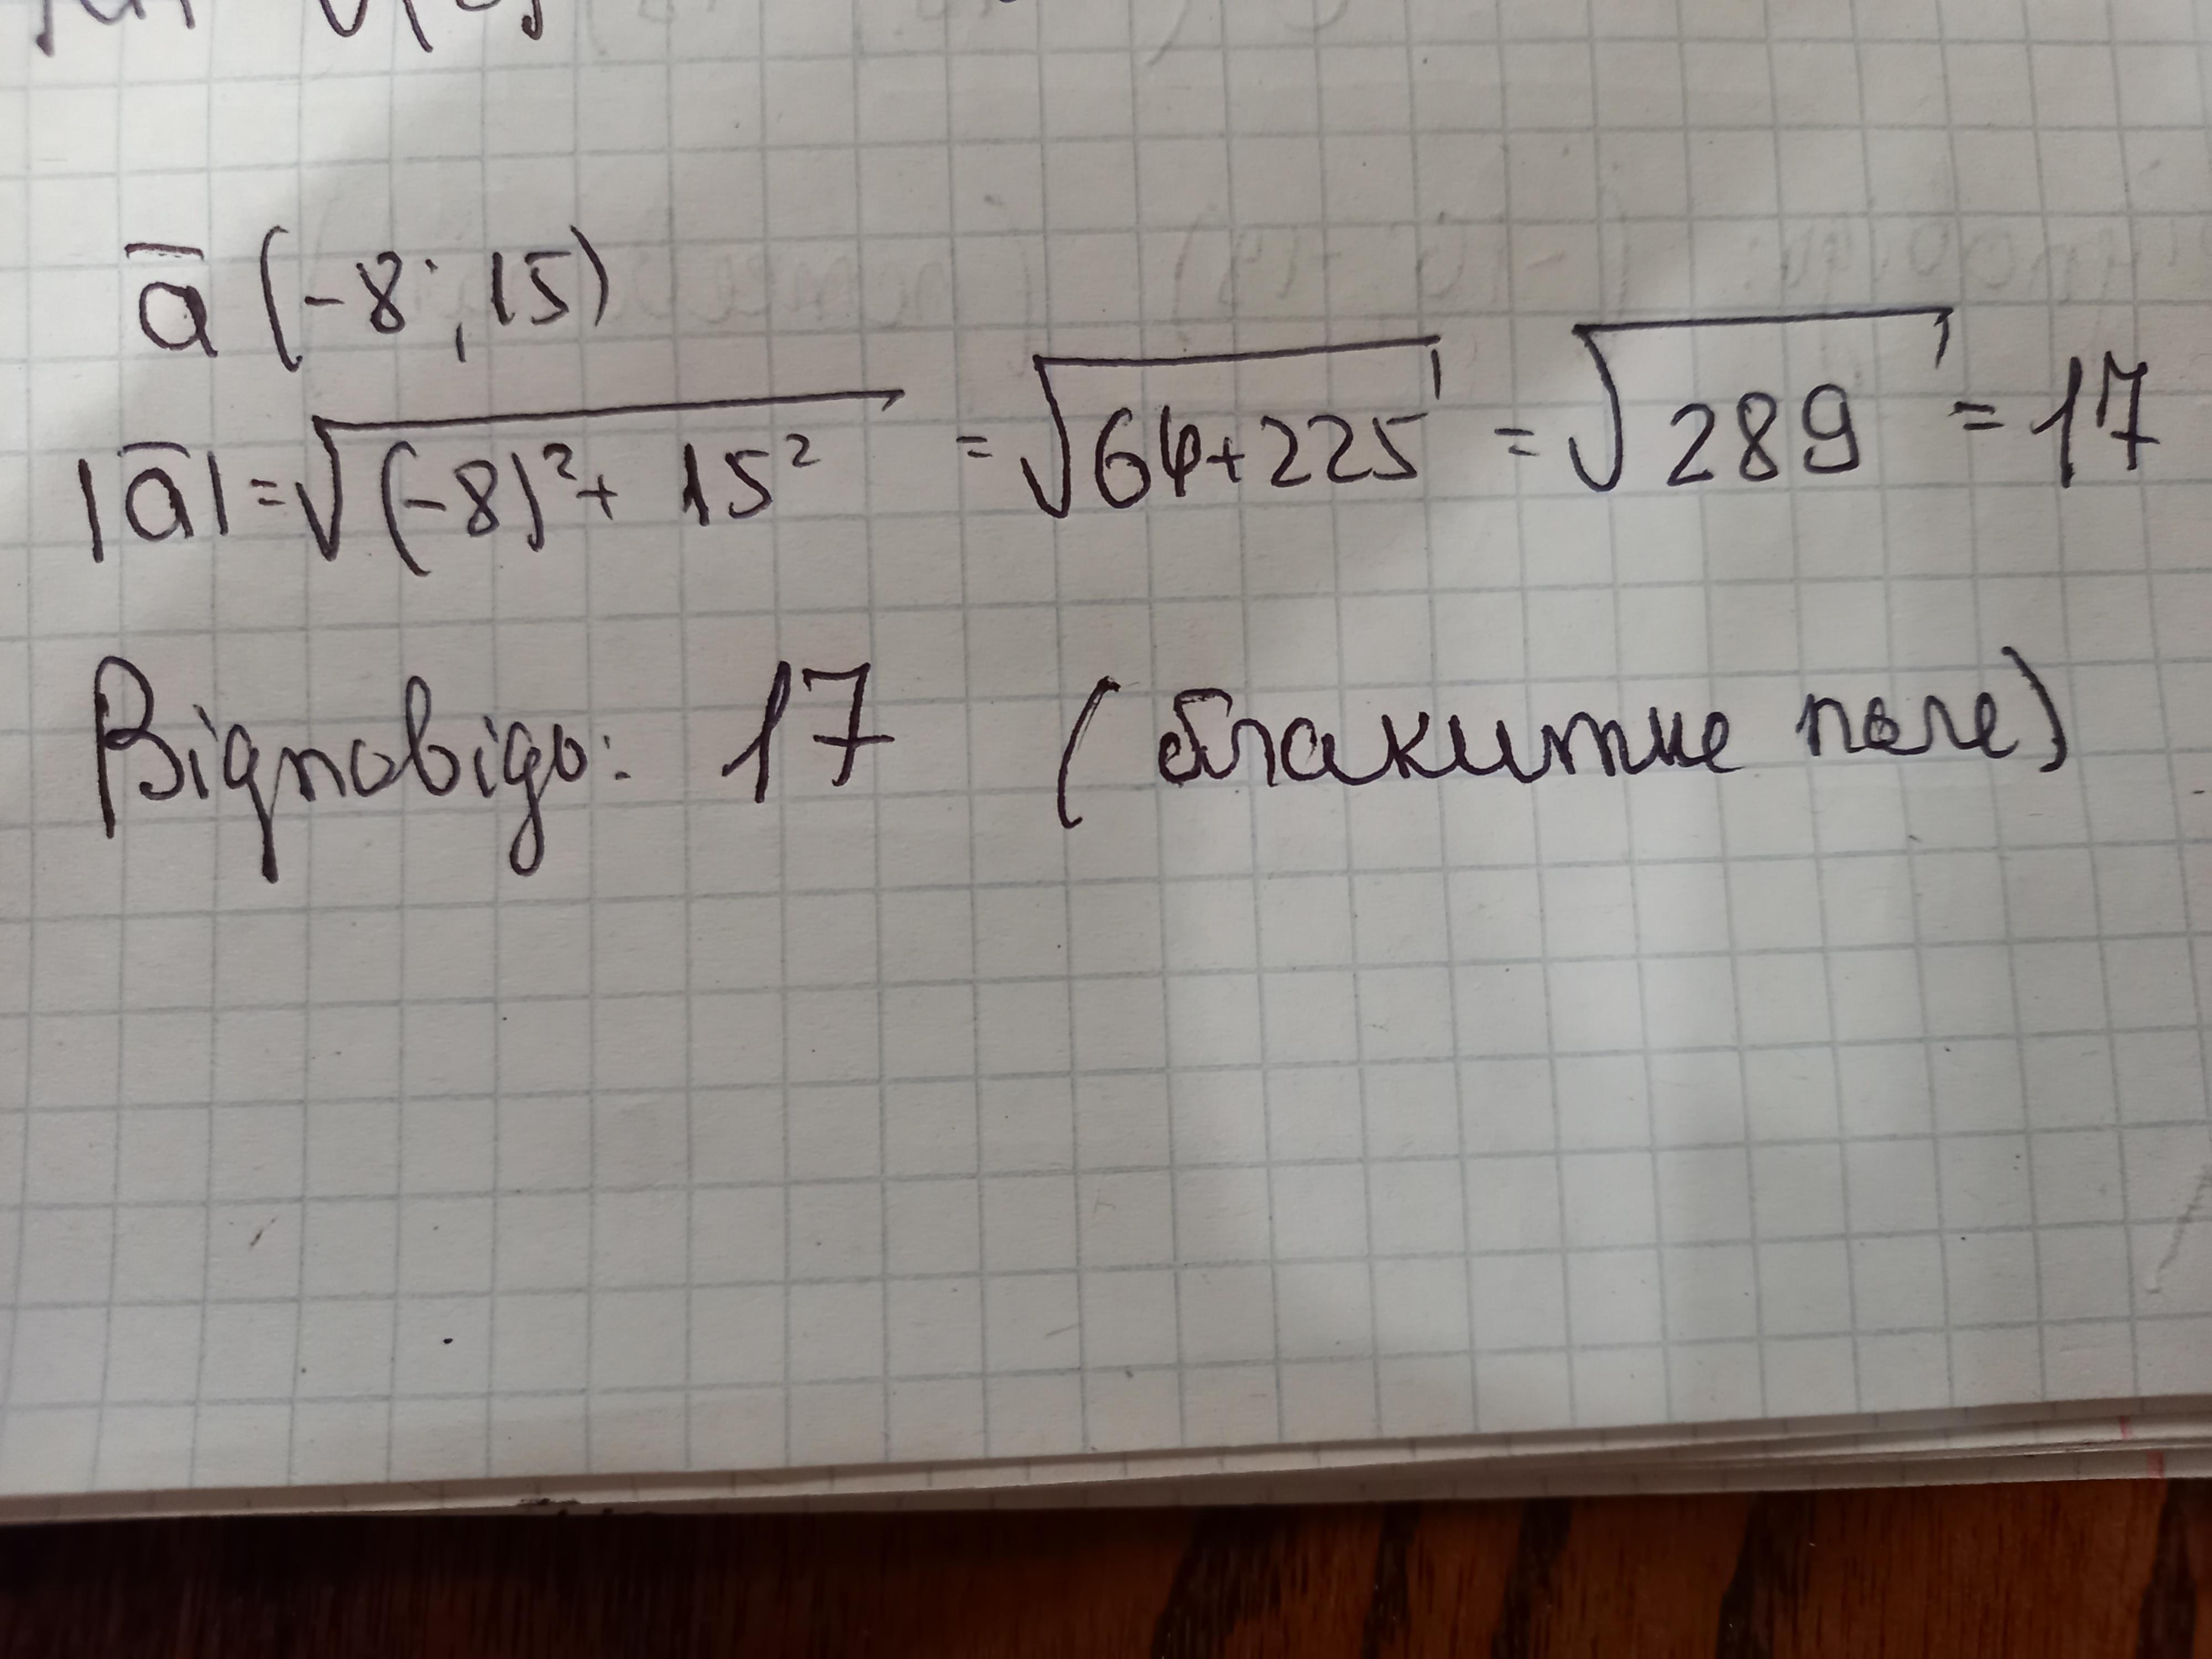 a̅ (-8; 15)
|a̅| = √((-8)² + 15²) = √(64+225) = √289 = 17
Відповідь: 17 (блакитне поле)